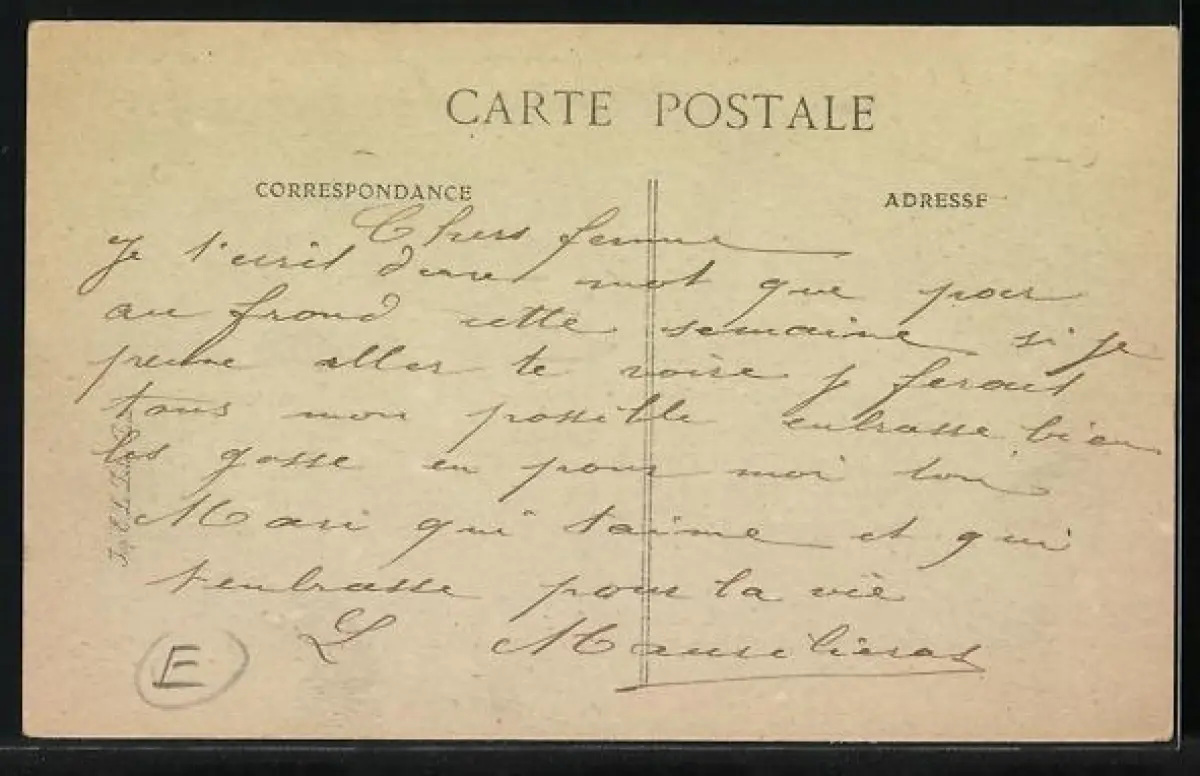 CARTE POSTALE
CORRESPONDANCE
ADRESSE
Chers femme
Je t'ecrit mot que pour
au frond cette semaine si je
peuve aller te voire j ferait
tous mon possible enbrasse bien
les gosse en pour moi ton
Mari qui t'aime et qui
t'enbrasse pour la vie
L
E